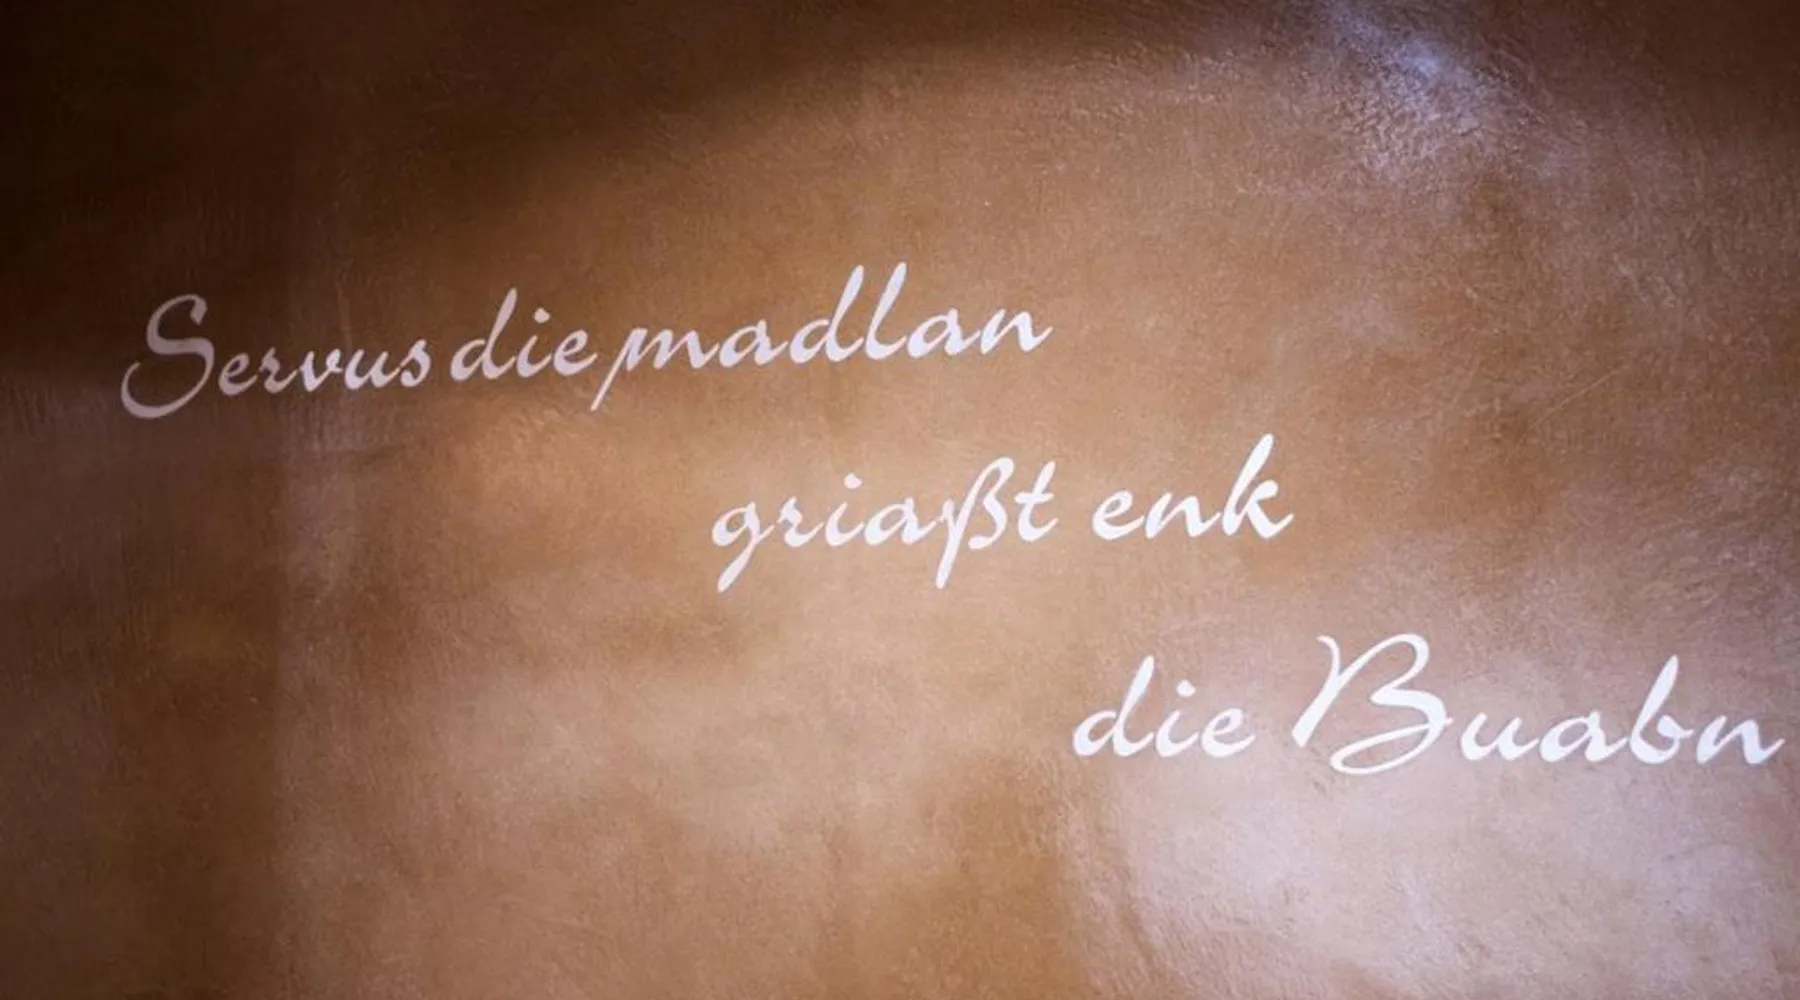 Servus die madlan
griaßt enk
die Buabn